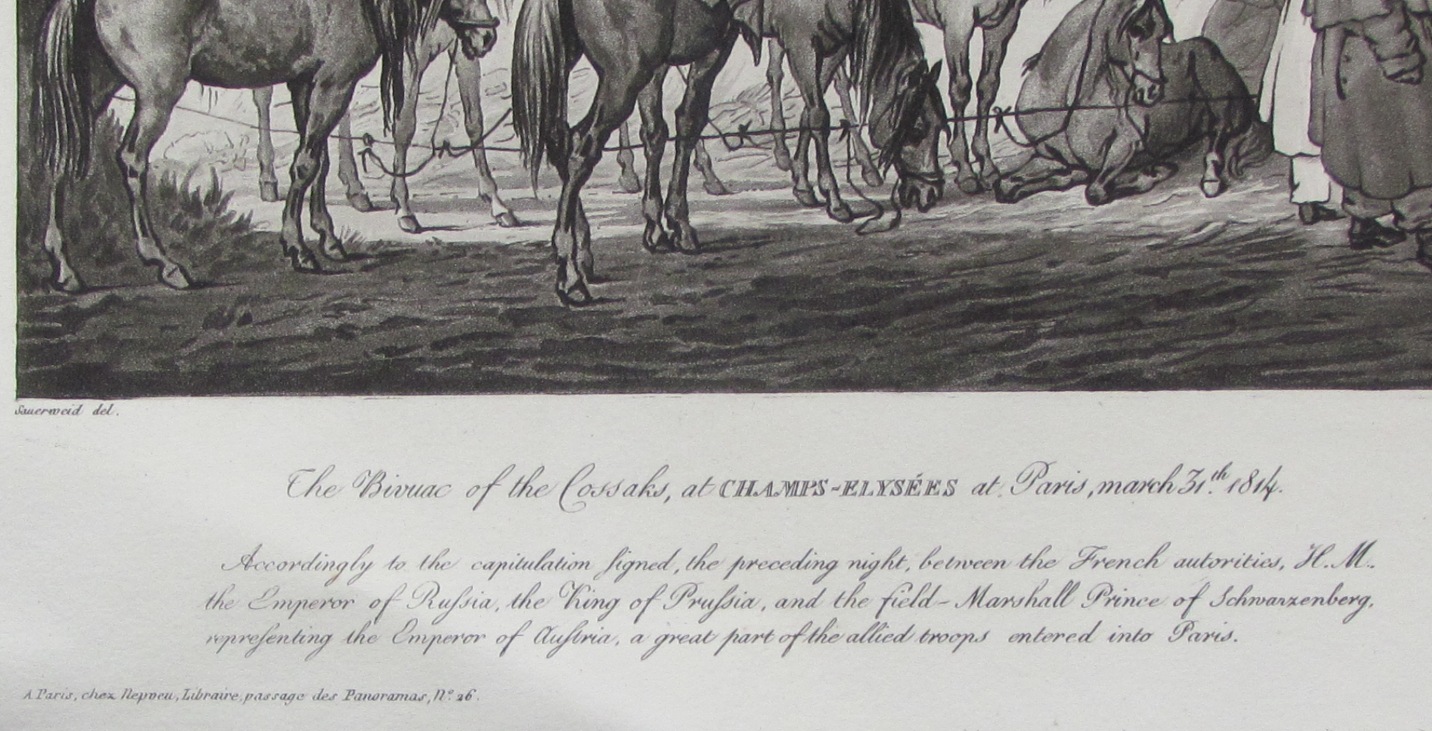 Sauerweid del.
The Bivuac of the Cossaks, at CHAMPS-ELYSÉES at Paris, march 31.th 1814.
Accordingly to the capitulation ſigned, the preceding night, between the French autorities, H. M..
the Emperor of Ruſsia, the King of Pruſsia, and the field-Marshall Prince of Schwarzenberg,
repreſenting the Emperor of Auſtria, a great part of the allied troops entered into Paris.
A Paris, chez Nepveu, Libraire, passage des Panoramas, N.º 26.